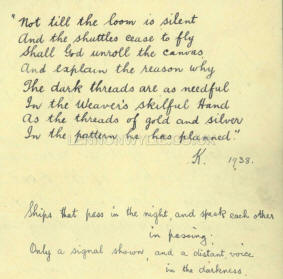 "Not till the loom is silent
And the shuttles cease to fly
Shall God unroll the canvas
And explain the reason why
The dark threads are as needful
In the Weaver's skilful Hand
As the threads of gold and silver
In the pattern he has planned."
K. 1938.
Ships that pass in the night, and speak each other
in passing;
Only a signal shown, and a distant voice
in the darkness.